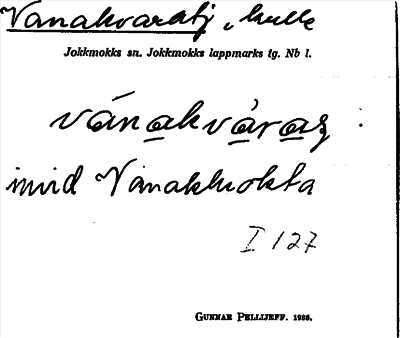 Vanakvaratj, kulle
Jokkmokks sn. Jokkmokks lappmarks tg. Nb l.
vánakvàraʒ :
invid Vanakluokta
I 127
GUNNAR PELLIJEFF. 1936.